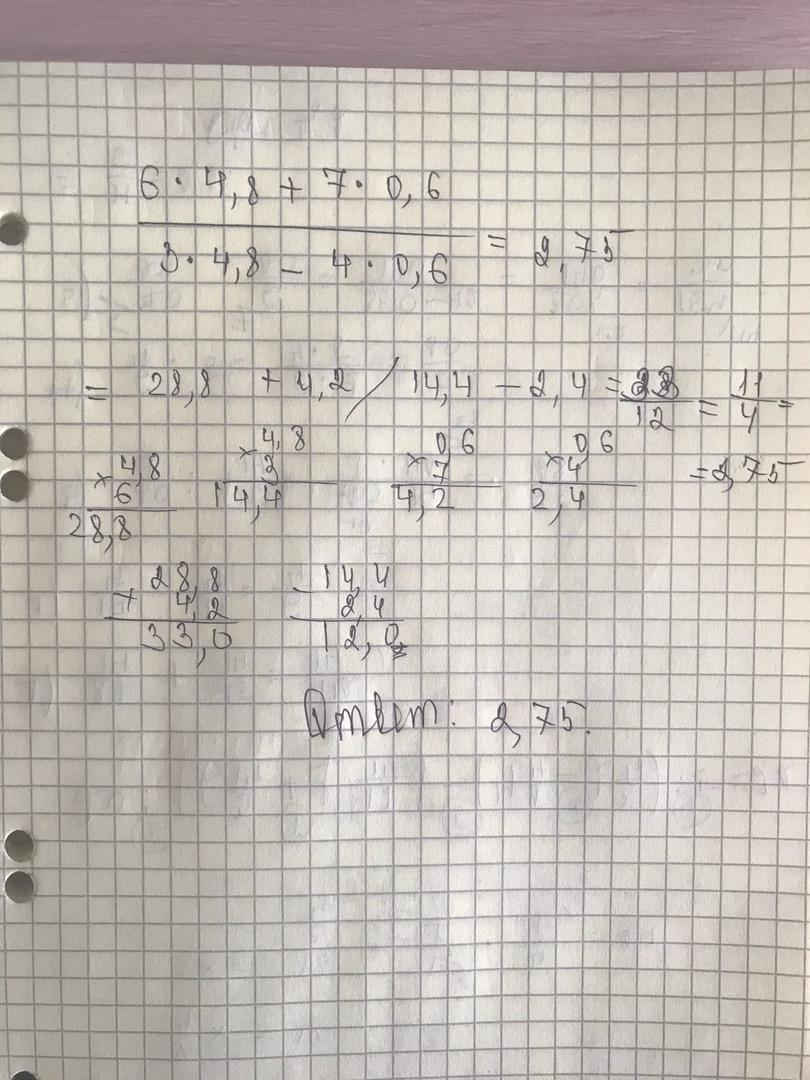 6 · 4,8 + 7 · 0,6
3 · 4,8 - 4 · 0,6 = 2,75
= 28,8 + 4,2 / 14,4 - 2,4 = 33/12 = 11/4 =
= 2,75
× 4,8
6
28,8
× 4,8
3
14,4
× 0,6
7
4,2
× 0,6
4
2,4
+ 28,8
4,2
33,0
- 14,4
2,4
12,0
Ответ: 2,75.